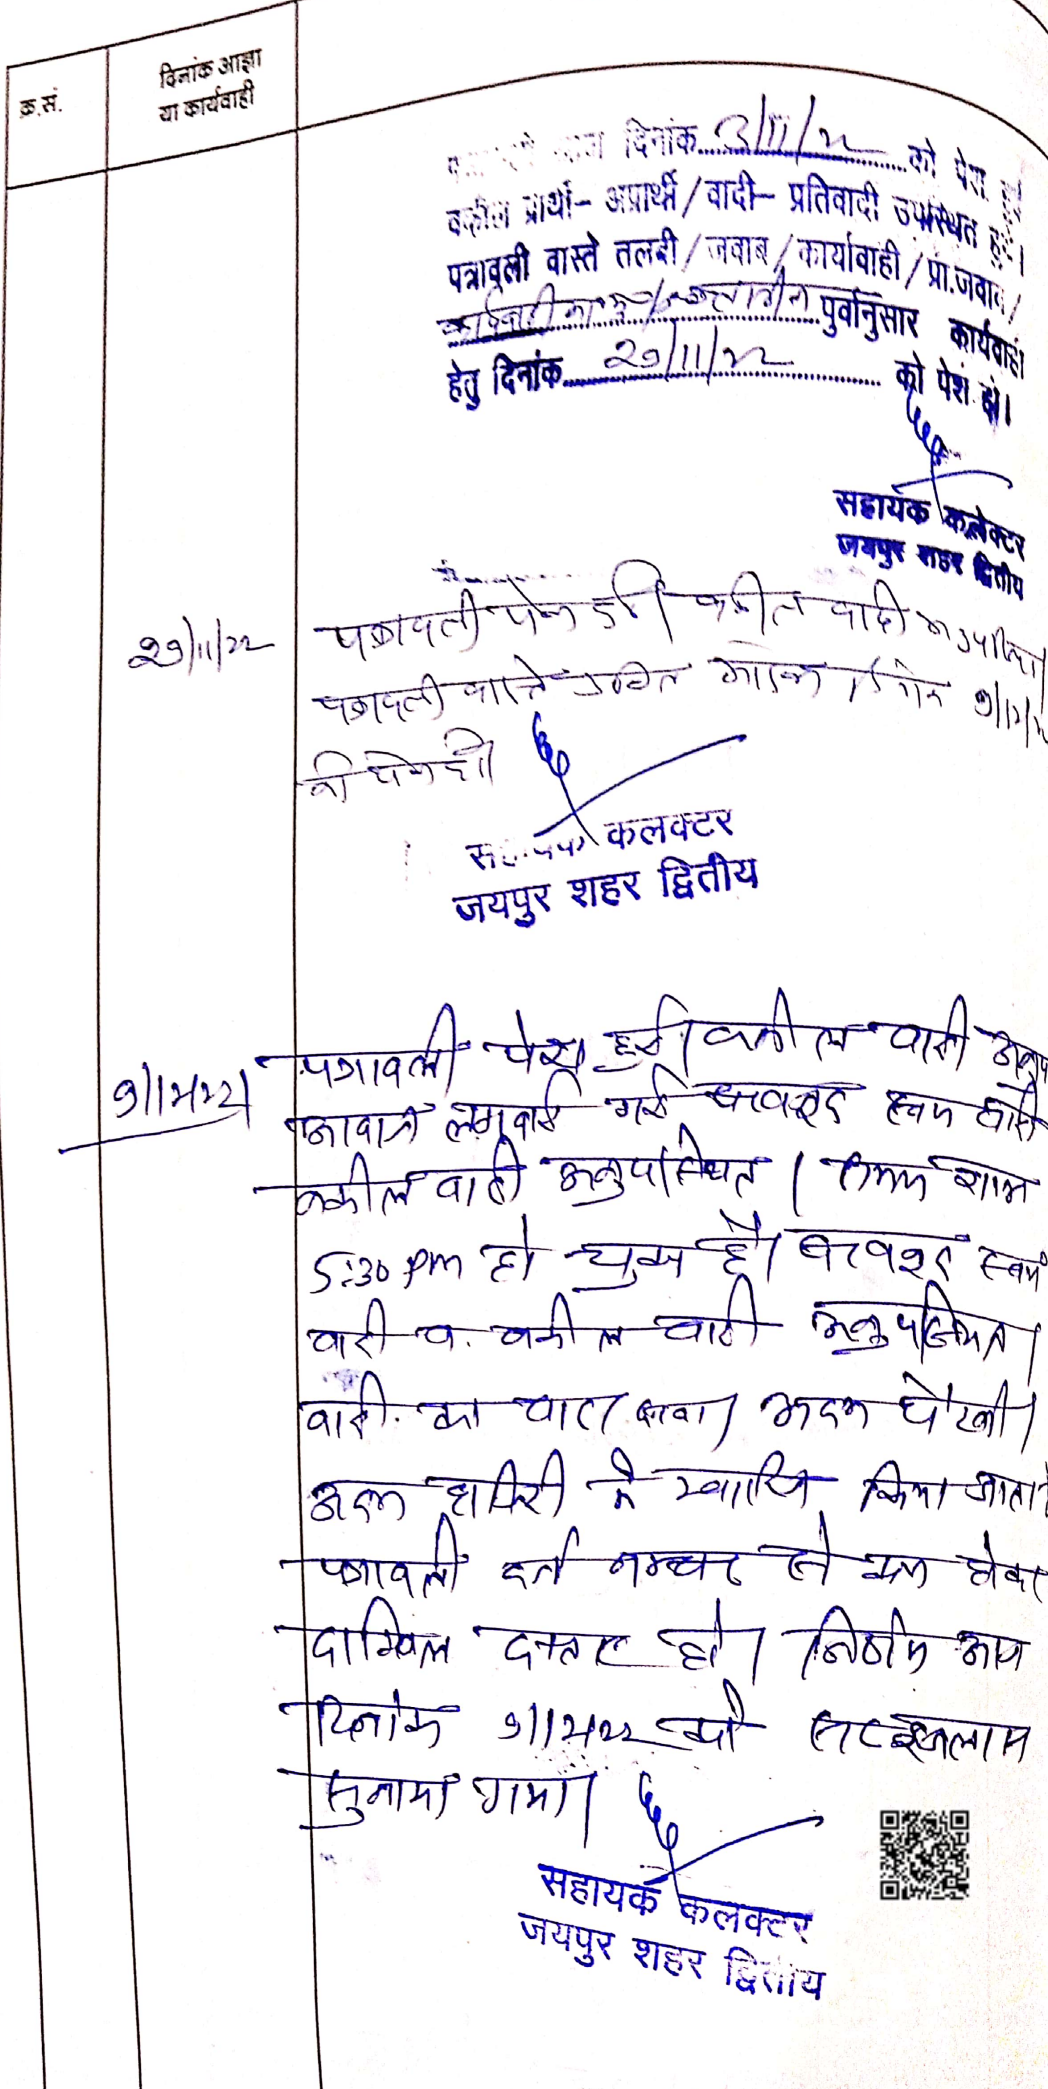 क्र.सं.
दिनांक आज्ञा
या कार्यवाही
दिनांक 3/11/22 को पेश हुई
वकील प्रार्थी- अप्रार्थी/वादी- प्रतिवादी उपस्थित हुए।
पत्रावली वास्ते तलबी/जवाब/कार्यावाही/प्रा.जवाब/
पुर्वानुसार कार्यवाही
हेतु दिनांक 29/11/22 को पेश हो।
सहायक कलेक्टर
जयपुर शहर द्वितीय
29/11/22 पत्रावली पेश हुई। वकील वादी
पत्रावली वास्ते उचित आदेश दिनांक
को पेश हो।
कलक्टर
जयपुर शहर द्वितीय
पत्रावली पेश हुई। वकील वादी
आवाज लगवाई गई बावजूद स्वयं वादी
वकील वादी अनुपस्थित। समय शाम
5:30 pm हो चुका है। बावजूद स्वयं
वादी व वकील वादी अनुपस्थित।
वादी का वाद अदम पैरवी।
अदम हाजिरी में खारिज किया जाता
पत्रावली दर्ज नम्बर से कम होकर
दाखिल दफ्तर हो। निर्णय आज
दिनांक को सरे इजलास
सुनाया गया।
सहायक कलक्टर
जयपुर शहर द्वितीय